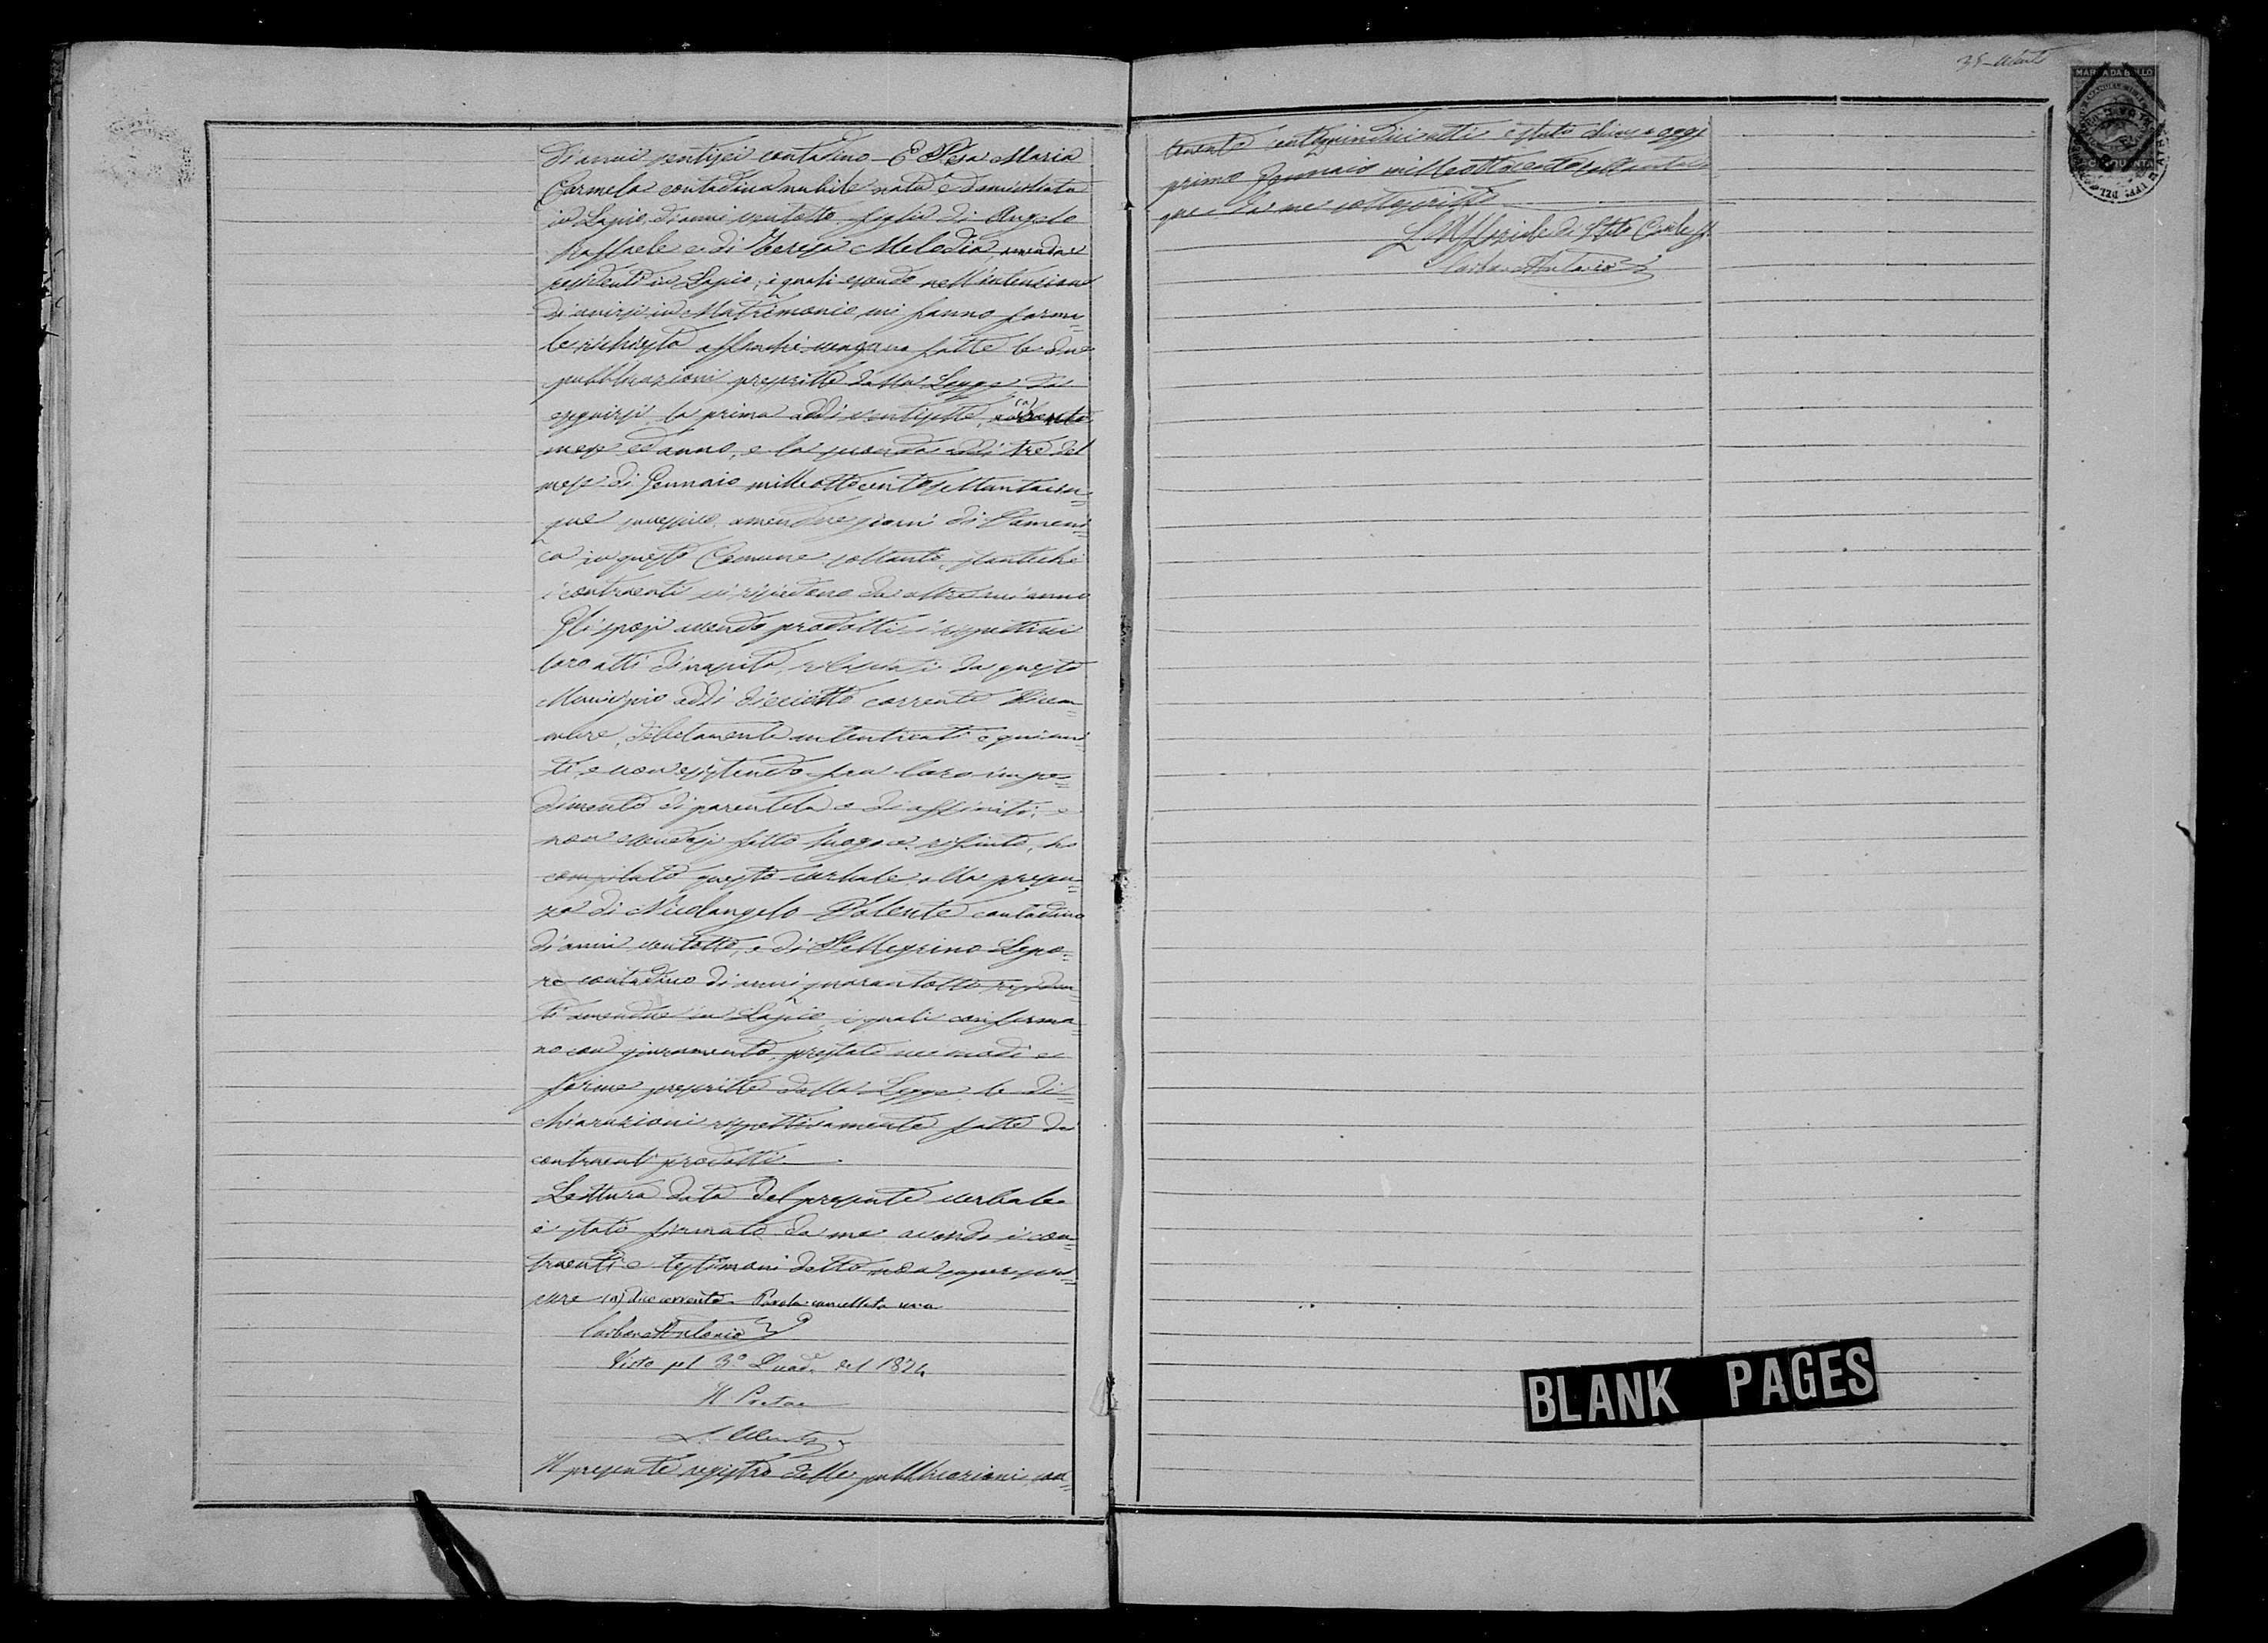 di anni ventisei contadino - E Pesa Maria
Carmela contadina nubile nata e domiciliata
in Lapio, di anni ventotto figlia di Angelo
Raffaele e di Teresa Melodia, amendue
residenti in Lapio; i quali essendo nell'intenzione
di unirsi in Matrimonio mi fanno forma=
le richiesta affinché vengano fatte le due
pubblicazioni prescritte dalla Legge da
eseguirsi la prima addì ventisette, (a)
mese ed anno, e la seconda addì tre del
mese di Gennaio milleottocentosettantacin=
que amendue giorni di Domeni=
ca in questo Comune soltanto, stanteché
i contraenti vi risiedono da oltre un anno
Gli sposi avendo prodotti i rispettivi
loro atti di nascita, rilasciati da questo
Municipio addì dieciotto corrente Dicem=
bre, debitamente autenticati
ti e non esistendo fra loro impe=
dimento di parentela o di affinità; e
non essendosi fatto luogo a rifiuto, ho
compilato questo verbale alla presen=
za di Nicolangelo Valente contadino
di anni ventotto, e di Pellegrino Lepo=
re contadino di anni quarantotto residen=
ti amendue in Lapio, i quali conferma=
no con giuramento, prestato nei modi e
forme prescritte dalla Legge le di=
chiarazioni rispettivamente fatte dai
contraenti predetti
Lettura data del presente verbale
è stato firmato da me avendo i con=
traenti e testimoni detto non saper scri=
vere (a) dico corrente - Parola cancellata una
Carbone Antonio
Visto pel 3° Quad.e del 1874
Il Pretore
Il presente registro delle pubblicazioni con=
tenente centoquindici atti è stato chiuso oggi
primo Gennaio milleottocentosettantacin=
que da me sottoscritto
L'Uffiziale di Stato Civile
Carbone Antonio
MARCA DA BOLLO
CINQUANTA
BLANK PAGES